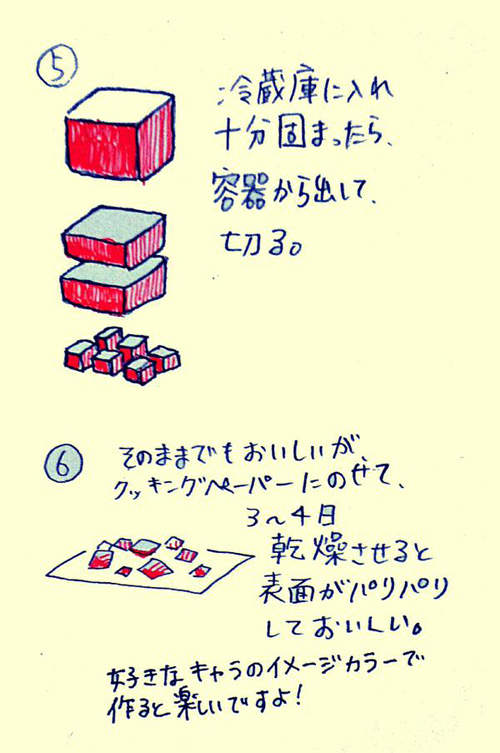 ⑤
冷蔵庫に入れ
十分固まったら、
容器から出して、
切る。
⑥
そのままでもおいしいが、
クッキングペーパーにのせて、
3〜4日
乾燥させると
表面がパリパリ
しておいしい。
好きなキャラのイメージカラーで
作ると楽しいですよ!